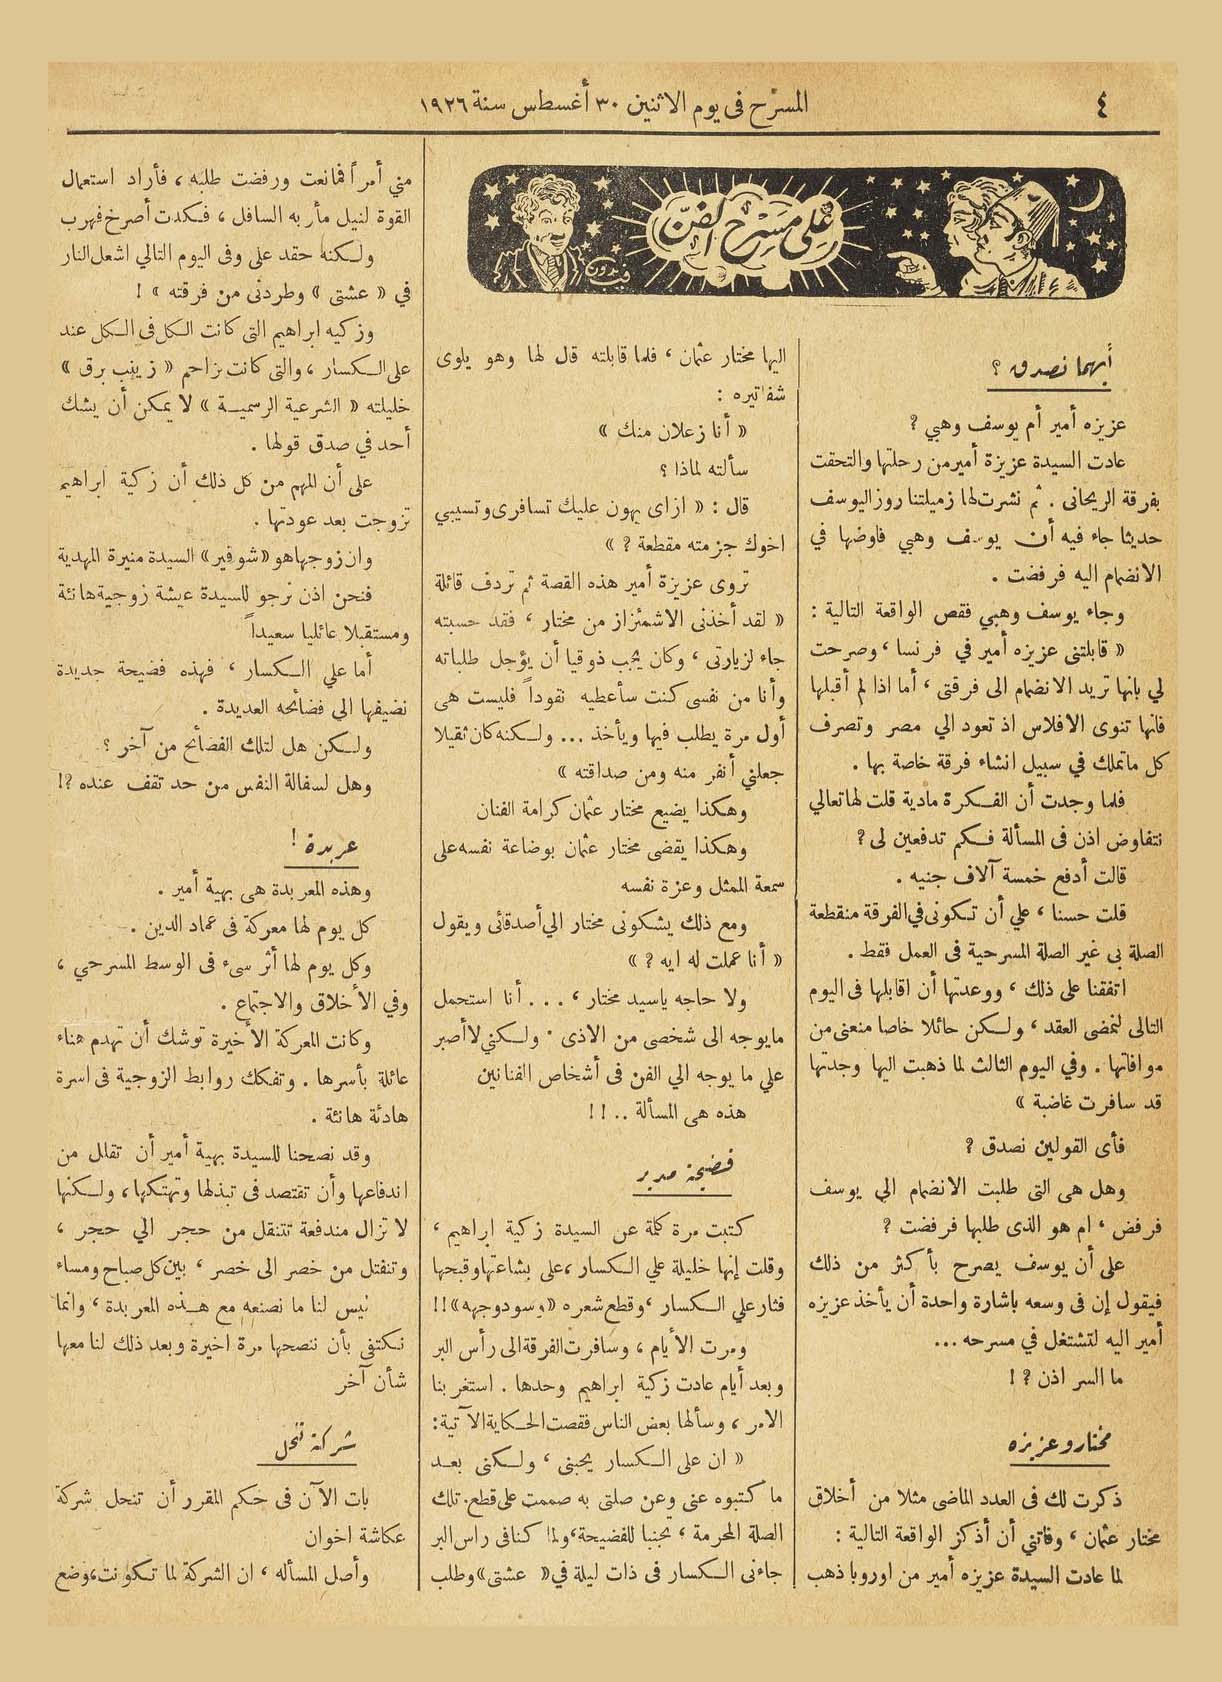 ٤
المسرح فى يوم الاثنين ٣٠ أغسطس سنة ١٩٢٦
على مسرح الفن
فيدون
أيهما نصدق ؟
عزيزه أمير أم يوسف وهبي ؟
عادت السيدة عزيزة أمير من رحلتها والتحقت
بفرقة الريحانى . ثم نشرت لها زميلتنا روز اليوسف
حديثا جاء فيه أن يوسف وهبي فاوضها في
الانضمام اليه فرفضت .
وجاء يوسف وهبي فقص الواقعة التالية :
« قابلتنى عزيزه أمير في فرنسا ، وصرحت
لي بانها تريد الانضمام الى فرقتى ، أما اذا لم أقبلها
فانها تنوى الافلاس اذ تعود الي مصر وتصرف
كل ماتملك في سبيل انشاء فرقة خاصة بها .
فلما وجدت أن الفكرة مادية قلت لها تعالي
نتفاوض اذن فى المسألة فكم تدفعين لى ؟
قالت أدفع خمسة آلاف جنيه .
قلت حسنا ، علي أن تكونى في الفرقة منقطعة
الصلة بى غير الصلة المسرحية فى العمل فقط .
اتفقنا على ذلك ، ووعدتها أن اقابلها فى اليوم
التالى لنمضى العقد ، ولكن حائلا خاصا منعنى من
موافاتها . وفي اليوم الثالث لما ذهبت اليها وجدتها
قد سافرت غاضبة »
فأى القولين نصدق ؟
وهل هى التى طلبت الانضمام الي يوسف
فرفض ، ام هو الذى طلبها فرفضت ؟
على أن يوسف يصرح بأكثر من ذلك
فيقول إن فى وسعه باشارة واحدة أن يأخذ عزيزه
أمير اليه لتشتغل في مسرحه ...
ما السر اذن ؟ !
مختار وعزيزه
ذكرت لك فى العدد الماضى مثلا من أخلاق
مختار عثمان ، وفاتني أن أذكر الواقعة التالية :
لما عادت السيدة عزيزه أمير من اوروبا ذهب
اليها مختار عثمان ، فلما قابلته قال لها وهو يلوى
شفاتيره :
« أنا زعلان منك »
سألته لماذا ؟
قال : « ازاى يهون عليك تسافرى وتسيبي
اخوك جزمته مقطعة ؟ »
تروى عزيزة أمير هذه القصة ثم تردف قائلة
« لقد أخذنى الاشمئزاز من مختار ، فقد حسبته
جاء لزيارتى ، وكان يجب ذوقيا أن يؤجل طلباته
وأنا من نفسى كنت سأعطيه نقوداً فليست هى
أول مرة يطلب فيها ويأخذ ... ولكنه كان ثقيلا
جعلني أنفر منه ومن صداقته »
وهكذا يضيع مختار عثمان كرامة الفنان
وهكذا يقضى مختار عثمان بوضاعة نفسه على
سمعة الممثل وعزة نفسه
ومع ذلك يشكونى مختار الي أصدقائى ويقول
« أنا عملت له ايه ؟ »
ولا حاجه ياسيد مختار ، ... أنا استحمل
مايوجه الى شخصى من الاذى . ولكني لا أصبر
علي ما يوجه الي الفن فى أشخاص الفنانين
هذه هى المسألة .. !!
فضيحة مدير
كتبت مرة كلمة عن السيدة زكية ابراهيم ،
وقلت إنها خليلة علي الكسار ، على بشاعتها وقبحها
فثار علي الكسار ، وقطع شعره « وسود وجهه » !!
ومرت الأيام ، وسافرت الفرقة الى رأس البر
وبعد أيام عادت زكية ابراهيم وحدها . استغربنا
الامر ، وسألها بعض الناس فقصت الحكاية الآتية :
« ان على الكسار يحبنى ، ولكنى بعد
ما كتبوه عنى وعن صلتى به صممت على قطع . تلك
الصلة المحرمة ، تجنبا للفضيحة ، ولما كنا فى راس البر
جاءنى الكسار فى ذات ليلة في « عشتى » وطلب
مني أمراً فمانعت ورفضت طلبه ، فأراد استعمال
القوة لنيل مأربه السافل ، فكدت أصرخ فهرب
ولكنه حقد على وفى اليوم التالي اشعل النار
في « عشتى » وطردنى من فرقته » !
وزكيه ابراهيم التى كانت الكل فى الكل عند
على الكسار ، والتى كانت تزاحم « زينب برق »
خليلته « الشرعية الرسمية » لا يمكن أن يشك
أحد في صدق قولها .
على أن المهم من كل ذلك أن زكية ابراهيم
تزوجت بعد عودتها .
وان زوجها هو « شوفير » السيدة منيرة المهدية
فنحن اذن نرجو للسيدة عيشة زوجية هانئة
ومستقبلا عائليا سعيداً
أما علي الكسار ، فهذه فضيحة جديدة
نضيفها الي فضائحه العديدة .
ولكن هل لتلك الفضائح من آخر ؟
وهل لسفالة النفس من حد تقف عنده ؟!
عربدة !
وهذه المعربدة هى بهية أمير .
كل يوم لها معركة فى عماد الدين .
وكل يوم لها أثر سىء فى الوسط المسرحي ،
وفي الأخلاق والاجتماع .
وكانت المعركة الأخيرة توشك أن تهدم هناء
عائلة بأسرها . وتفكك روابط الزوجية فى اسرة
هادئة هانئة .
وقد نصحنا للسيدة بهية أمير أن تقلل من
اندفاعها وأن تقتصد فى تبذلها وتهتكها ، ولكنها
لا تزال مندفعة تتنقل من حجر الي حجر ،
وتنفتل من خصر الى خصر ، بين كل صباح ومساء
ليس لنا ما نصنعه مع هذه المعربدة ، وانما
نكتفى بأن ننصحها مرة اخيرة وبعد ذلك لنا معها
شأن آخر
شركة تنحل
بات الآن فى حكم المقرر أن تنحل شركة
عكاشة اخوان
وأصل المسأله ، ان الشركة لما تكونت ، وضع